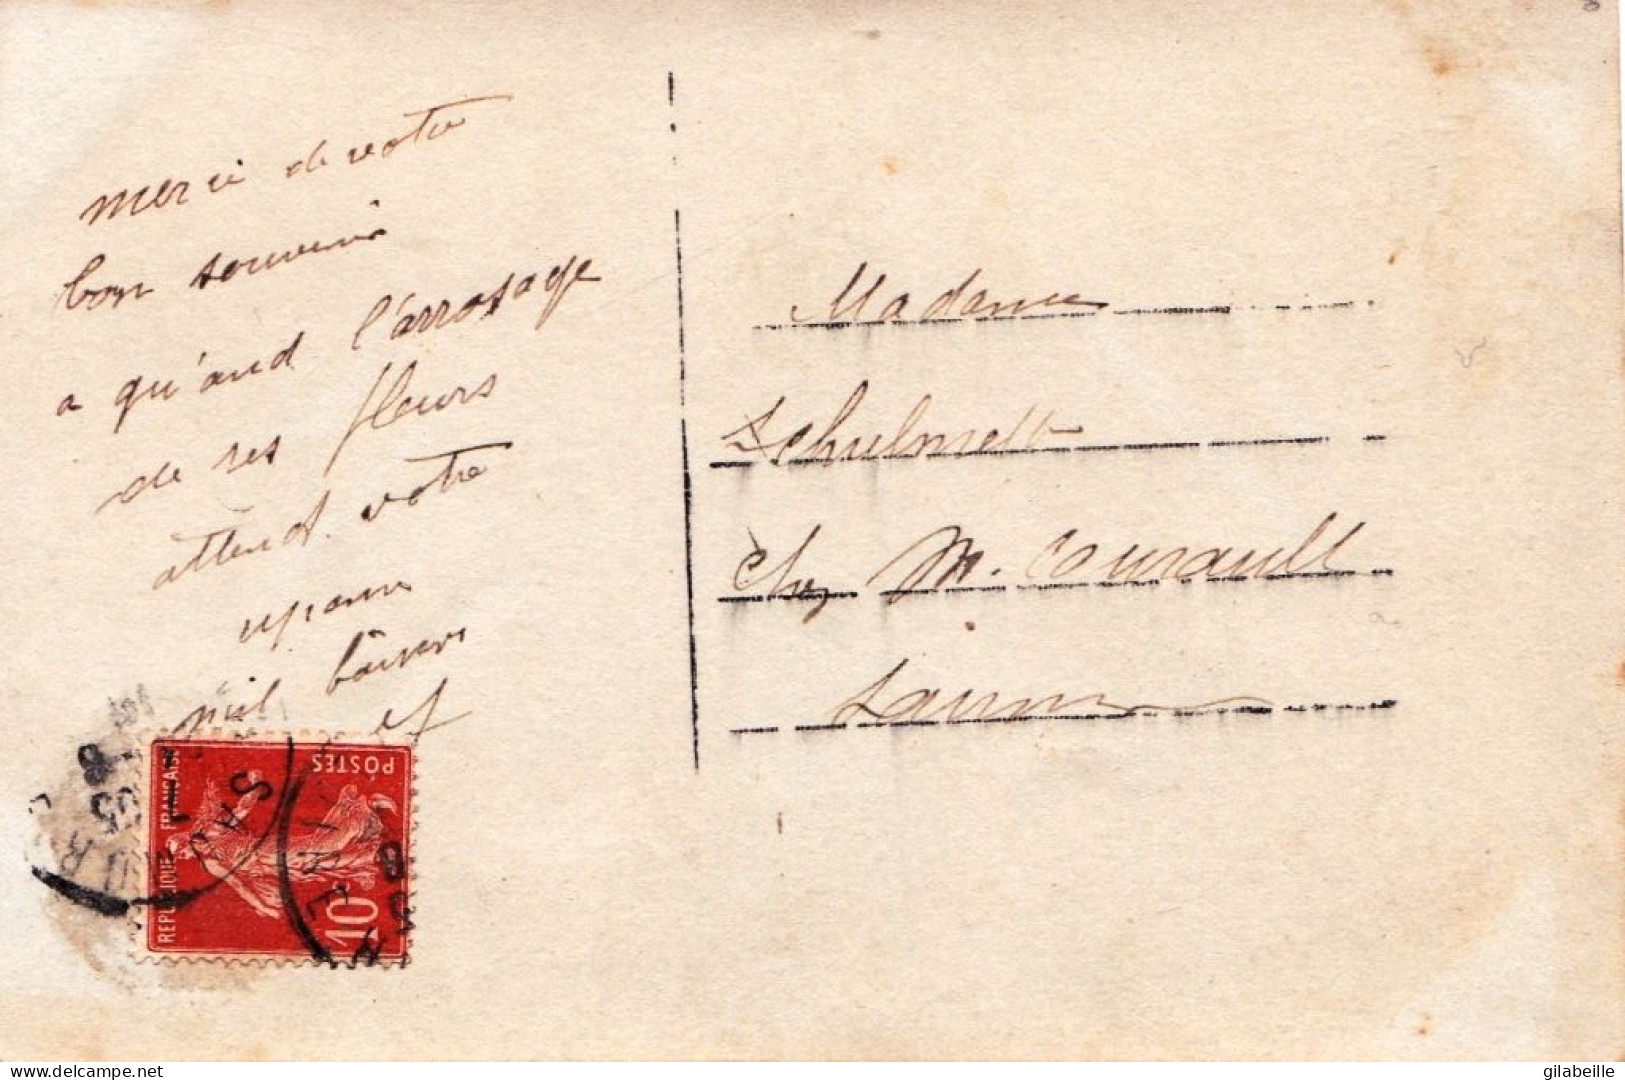 merci de votre
bon souvenir
a qu'and l'arrosage
de ses fleurs
attend votre
réponse
mil baisers
et
Madame
Schulmett
chez M. Courault
POSTES
REPUBLIQUE FRANCAISE
10
SAU
delcampe.net
gilabeille